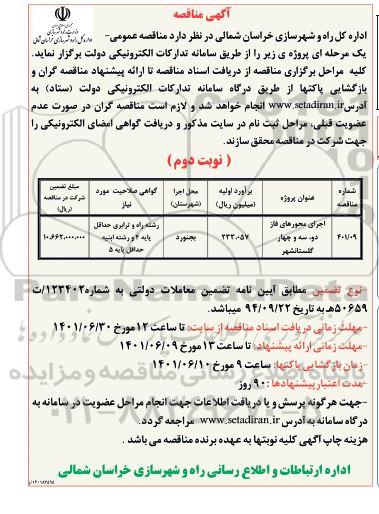 آگهی مناقصه
وزارت راه و شهرسازی
اداره کل راه و شهرسازی خراسان شمالی
اداره کل راه و شهرسازی خراسان شمالی در نظر دارد مناقصه عمومی-
یک مرحله ای پروژه ی زیر را از طریق سامانه تدارکات الکترونیکی دولت برگزار نماید.
کلیه مراحل برگزاری مناقصه از دریافت اسناد مناقصه تا ارائه پیشنهاد مناقصه گران و
بازگشایی پاکتها از طریق درگاه سامانه تدارکات الکترونیکی دولت (ستاد) به
آدرس www.setadiran.ir انجام خواهد شد و لازم است مناقصه گران در صورت عدم
عضویت قبلی، مراحل ثبت نام در سایت مذکور و دریافت گواهی امضای الکترونیکی را
جهت شرکت در مناقصه محقق سازند.
( نوبت دوم )
شماره مناقصه | عنوان پروژه | برآورد اولیه (میلیون ریال) | محل اجرا (شهرستان) | گواهی صلاحیت مورد نیاز | مبلغ تضمین شرکت در مناقصه (ریال)
۴۰۱/۰۹ | اجرای محورهای فاز دو، سه و چهار گلستانشهر | ۲۳۳،۰۵۷ | بجنورد | رشته راه و ترابری حداقل پایه ۴ و رشته ابنیه حداقل پایه ۵ | ۱۰،۶۶۲،۰۰۰،۰۰۰
نوع تضمین مطابق آیین نامه تضمین معاملات دولتی به شماره۱۲۳۴۰۲/ت
۵۰۶۵۹ه به تاریخ ۹۴/۰۹/۲۲ میباشد.
-مهلت زمانی دریافت اسناد مناقصه از سایت: تا ساعت ۱۲ مورخ ۱۴۰۱/۰۶/۳۰
-مهلت زمانی ارائه پیشنهاد: تا ساعت ۱۳ مورخ ۱۴۰۱/۰۶/۰۹
-زمان بازگشایی پاکتها: ساعت ۹ مورخ ۱۴۰۱/۰۶/۱۰
-مدت اعتبار پیشنهادها : ۹۰ روز
-جهت هرگونه پرسش و یا دریافت اطلاعات جهت انجام مراحل عضویت در سامانه به
درگاه سامانه به آدرس www.setadiran.ir مراجعه گردد.
هزینه چاپ آگهی کلیه نوبتها به عهده برنده مناقصه می باشد .
اداره ارتباطات و اطلاع رسانی راه و شهرسازی خراسان شمالی